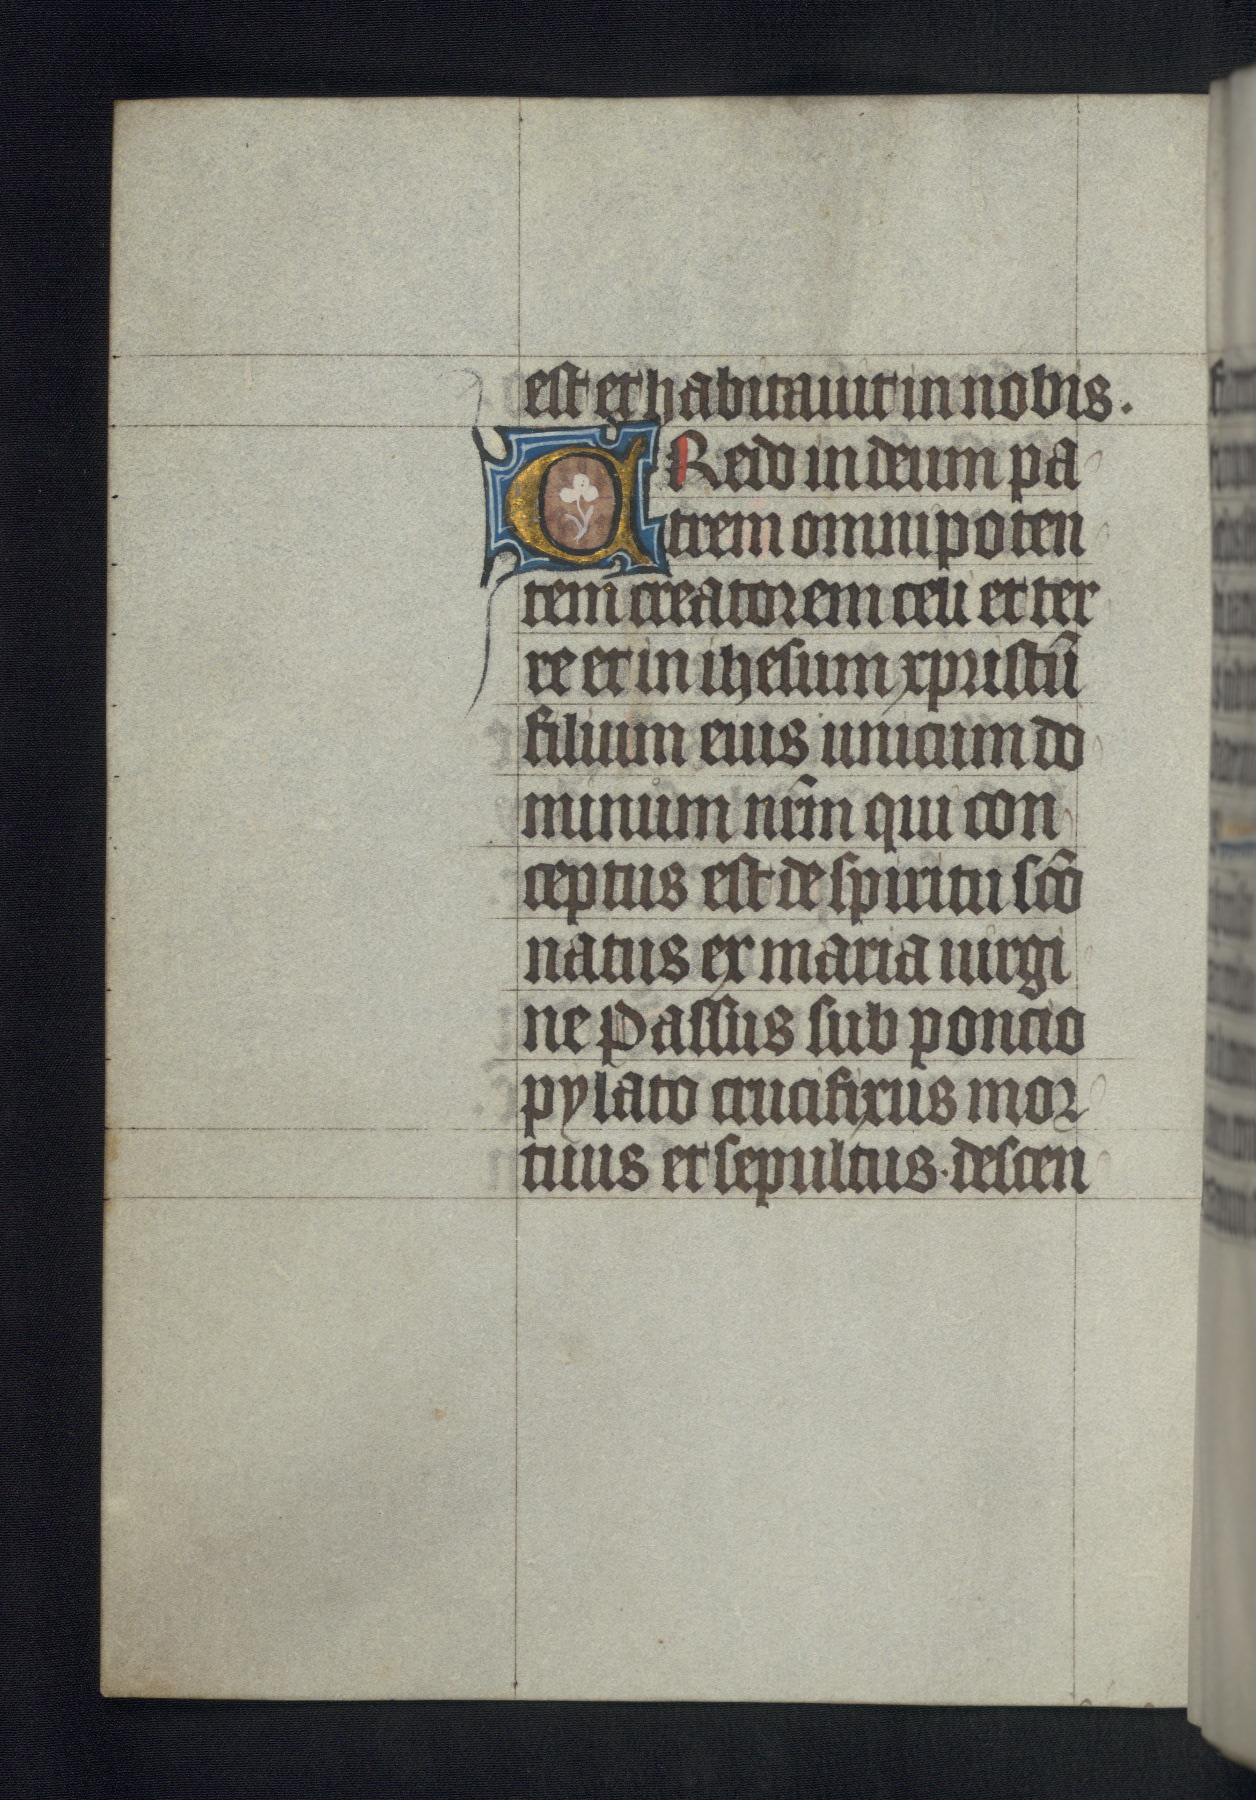 est et habitauit in nobis.
CRedo in deum pa
trem omnipoten
tem creatorem celi et ter
re et in ihesum xpristū
filium eius unicum do
minum nr̄m qui con
ceptus est de spiritu sc̄o
natus ex maria uirgi
ne Passus sub poncio
pylato crucifixus mor
tuus et sepultus. descen